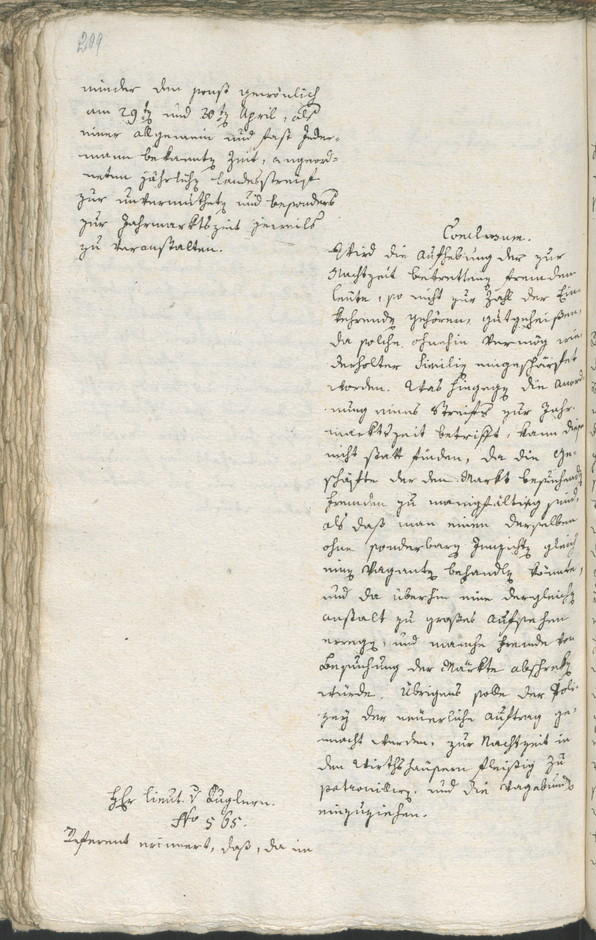 209
minder den sonst gewönlich
am 29t und 30t April, als
einer allgemein und fast Jeder-
mann bekannt Zeit, angeord-
neten jährlich Landesstreif
zur unvermuthet und besonders
zur Jahrmarktszeit jeweils
zu veranstalten.
Conclusum.
Wird die Aufhebung der zur
Nachtzeit betrettenen fremden
Leute, so nicht zur Zahl der Ein-
kehrende gehören, gutgeheißen,
da solche ohnehin vermög wie-
derholter eingeschärfet
worden. Was hingegen die Anord-
nung eines Streifs zur Jahr-
marktszeit betrifft, kann dies
nicht statt finden, da die Ge-
schäfte der den Markt besuchend
fremden zu manigfältig sind,
als daß man einen derselben
ohne sonderbare Inzicht gleich
einen Vagant behandlen könnte,
und da überhin eine dergleiche
Anstalt zu großes Aufsehen
errege, und manche Fremde von
Besuchung der Märkte abschrek
würde. Übrigens solle der Poli-
zey der neuerliche Auftrag ge-
macht werden, zur Nachtzeit in
den Wirthshäusern fleißig zu
patroulliren, und die Vagabund
einzuziehen.
Hr Lieut. v Kuglern.
No 565.
Referent erinnert, daß, da im